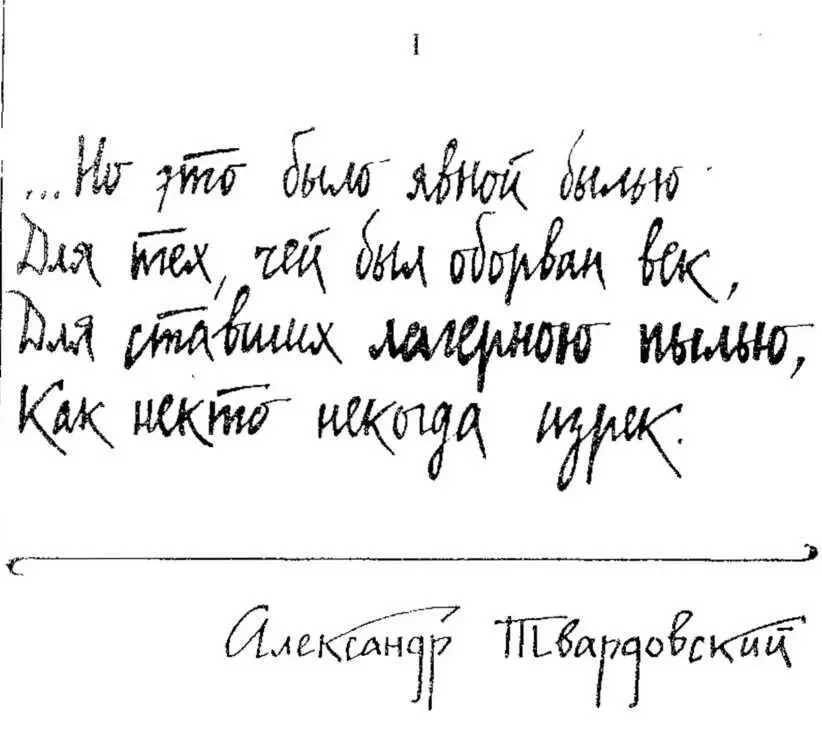 I
...Но это было явной былью
Для тех, чей был оборван век,
Для ставших лагерною пылью,
Как некто некогда изрек.
Александр Твардовский